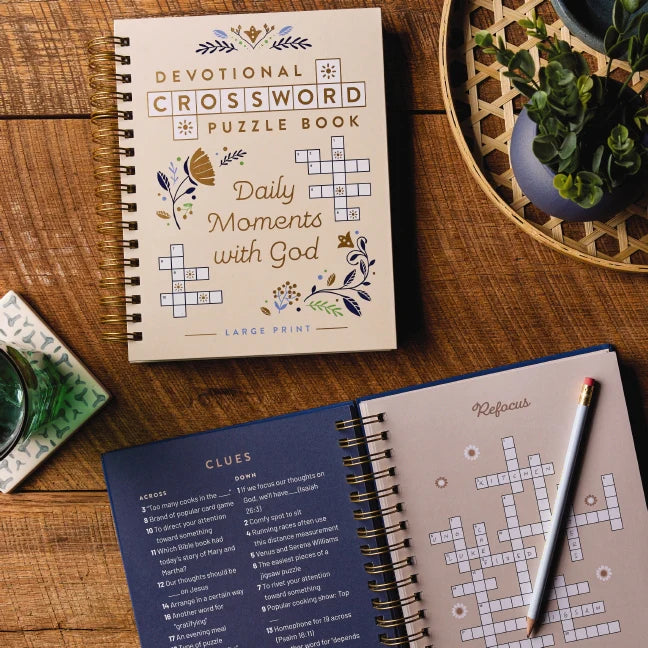 DEVOTIONAL
CROSSWORD
PUZZLE BOOK
Daily
Moments
with God
LARGE PRINT
CLUES
ACROSS
3 "Too many cooks in the ___"
8 Brand of popular card game
10 To direct your attention
toward something
11 Which Bible book had
today's story of Mary and
Martha?
12 Our thoughts should be
___on Jesus
14 Arrange in a certain way
16 Another word for
"gratifying"
17 An evening meal
DOWN
1 If we focus our thoughts on
God, we'll have___(Isaiah
26:3)
2 Comfy spot to sit
4 Running races often use
this distance measurement
5 Venus and Serena Williams
6 The easiest pieces of a
jigsaw puzzle
7 To rivet your attention
toward something
9 Popular cooking show: Top
___
13 Homophone for 19 across
(Psalm 16:11)
word for "depends
Refocus
KITCHEN
UNO
FIXED